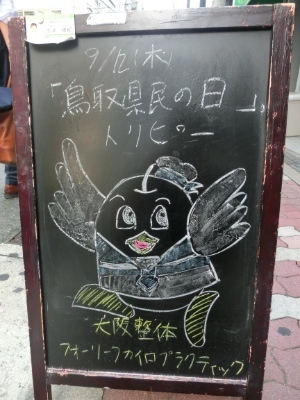 9/12(木)
「鳥取県民の日」
トリピー
大阪整体
フォーリーフカイロプラクティック